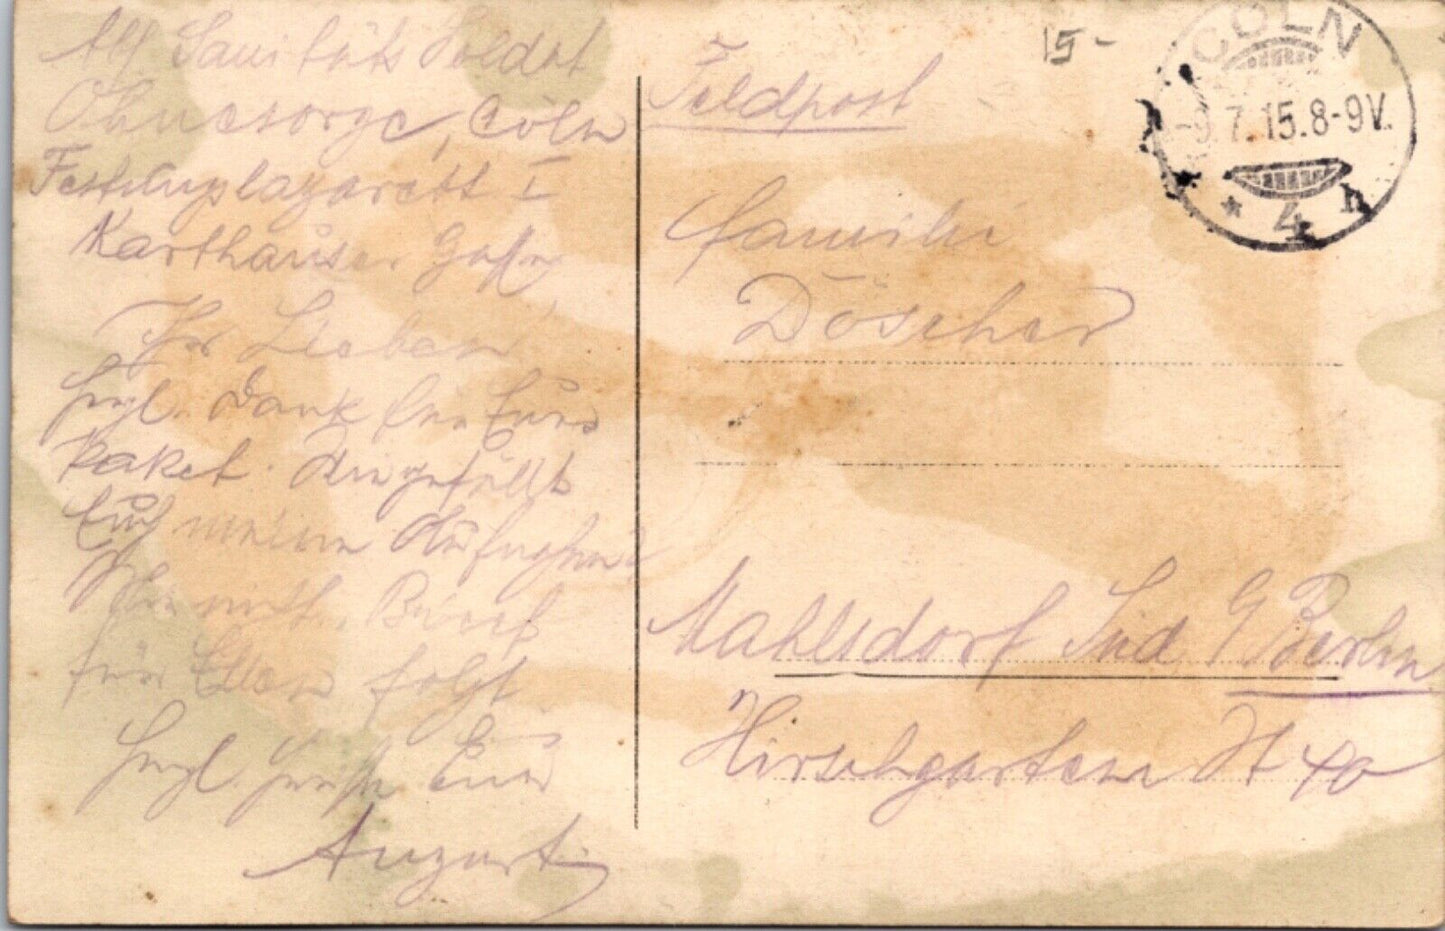 Abs Sanitäts Soldat
Ohnesorge, Cöln
Festungslazarett I
Karthäuser
Ihr Lieben
Herzl. Dank für Euer
Paket. Wie gefällt
Euch meine
Brief
für Ellen folgt
Herzl Grüße Euer
August
15-
CÖLN
-9.7.15.8-9V.
* 4 h
Feldpost
Familie
Döscher
Mahlsdorf Süd b/ Berlin
Hirschgarten St